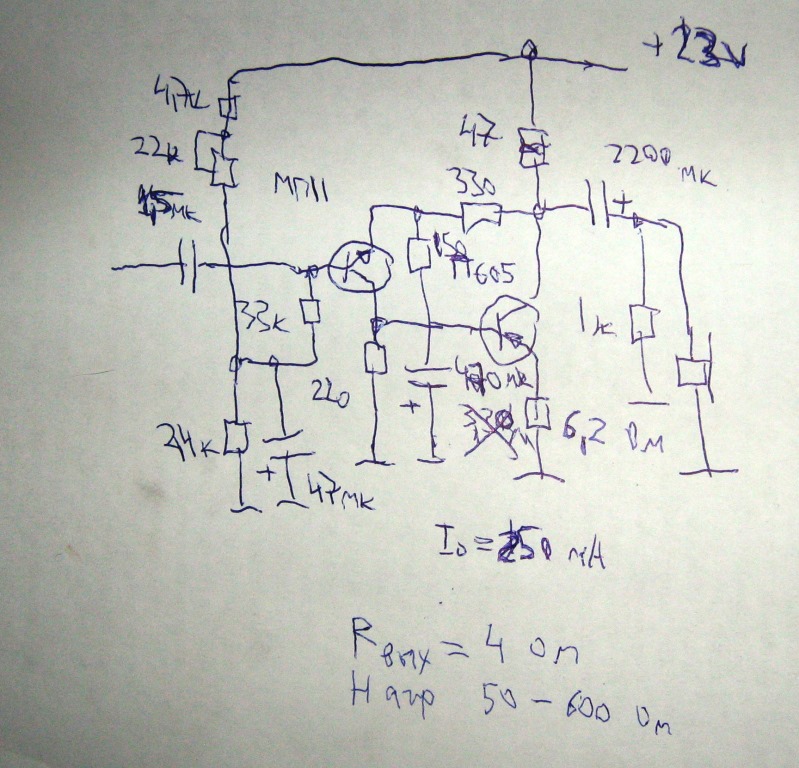 +23V
4,7к
22к
47
2200 мк
330
1,5мк
МП11
150
П605
33к
1к
220
470 мк
6,2 Ом
24к
47 мк
I₀ = 250 мА
Rвых = 4 Ом
Нагр 50 - 600 Ом